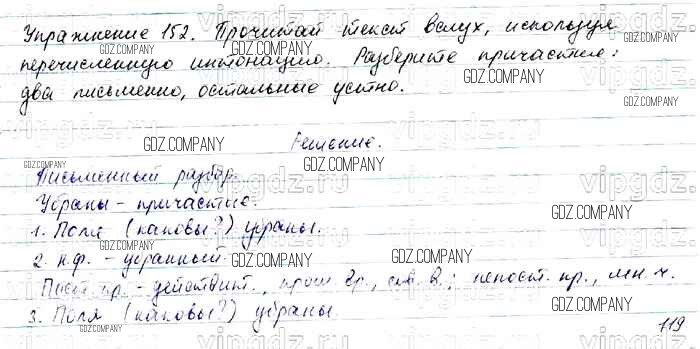 Упражнение 152. Прочитай текст вслух, используя
перечисленную интонацию. Разберите причастие:
два письменно, остальные устно.
Решение.
Письменный разбор.
Убраны - причастие.
1. Поля (каковы?) убраны.
2. н.ф. - убранный.
Пост. пр. - действит., прош. вр., сов. в.; непост. пр., мн. ч.
3. Поля (каковы?) убраны.
119
GDZ.COMPANY
vipgdz.ru